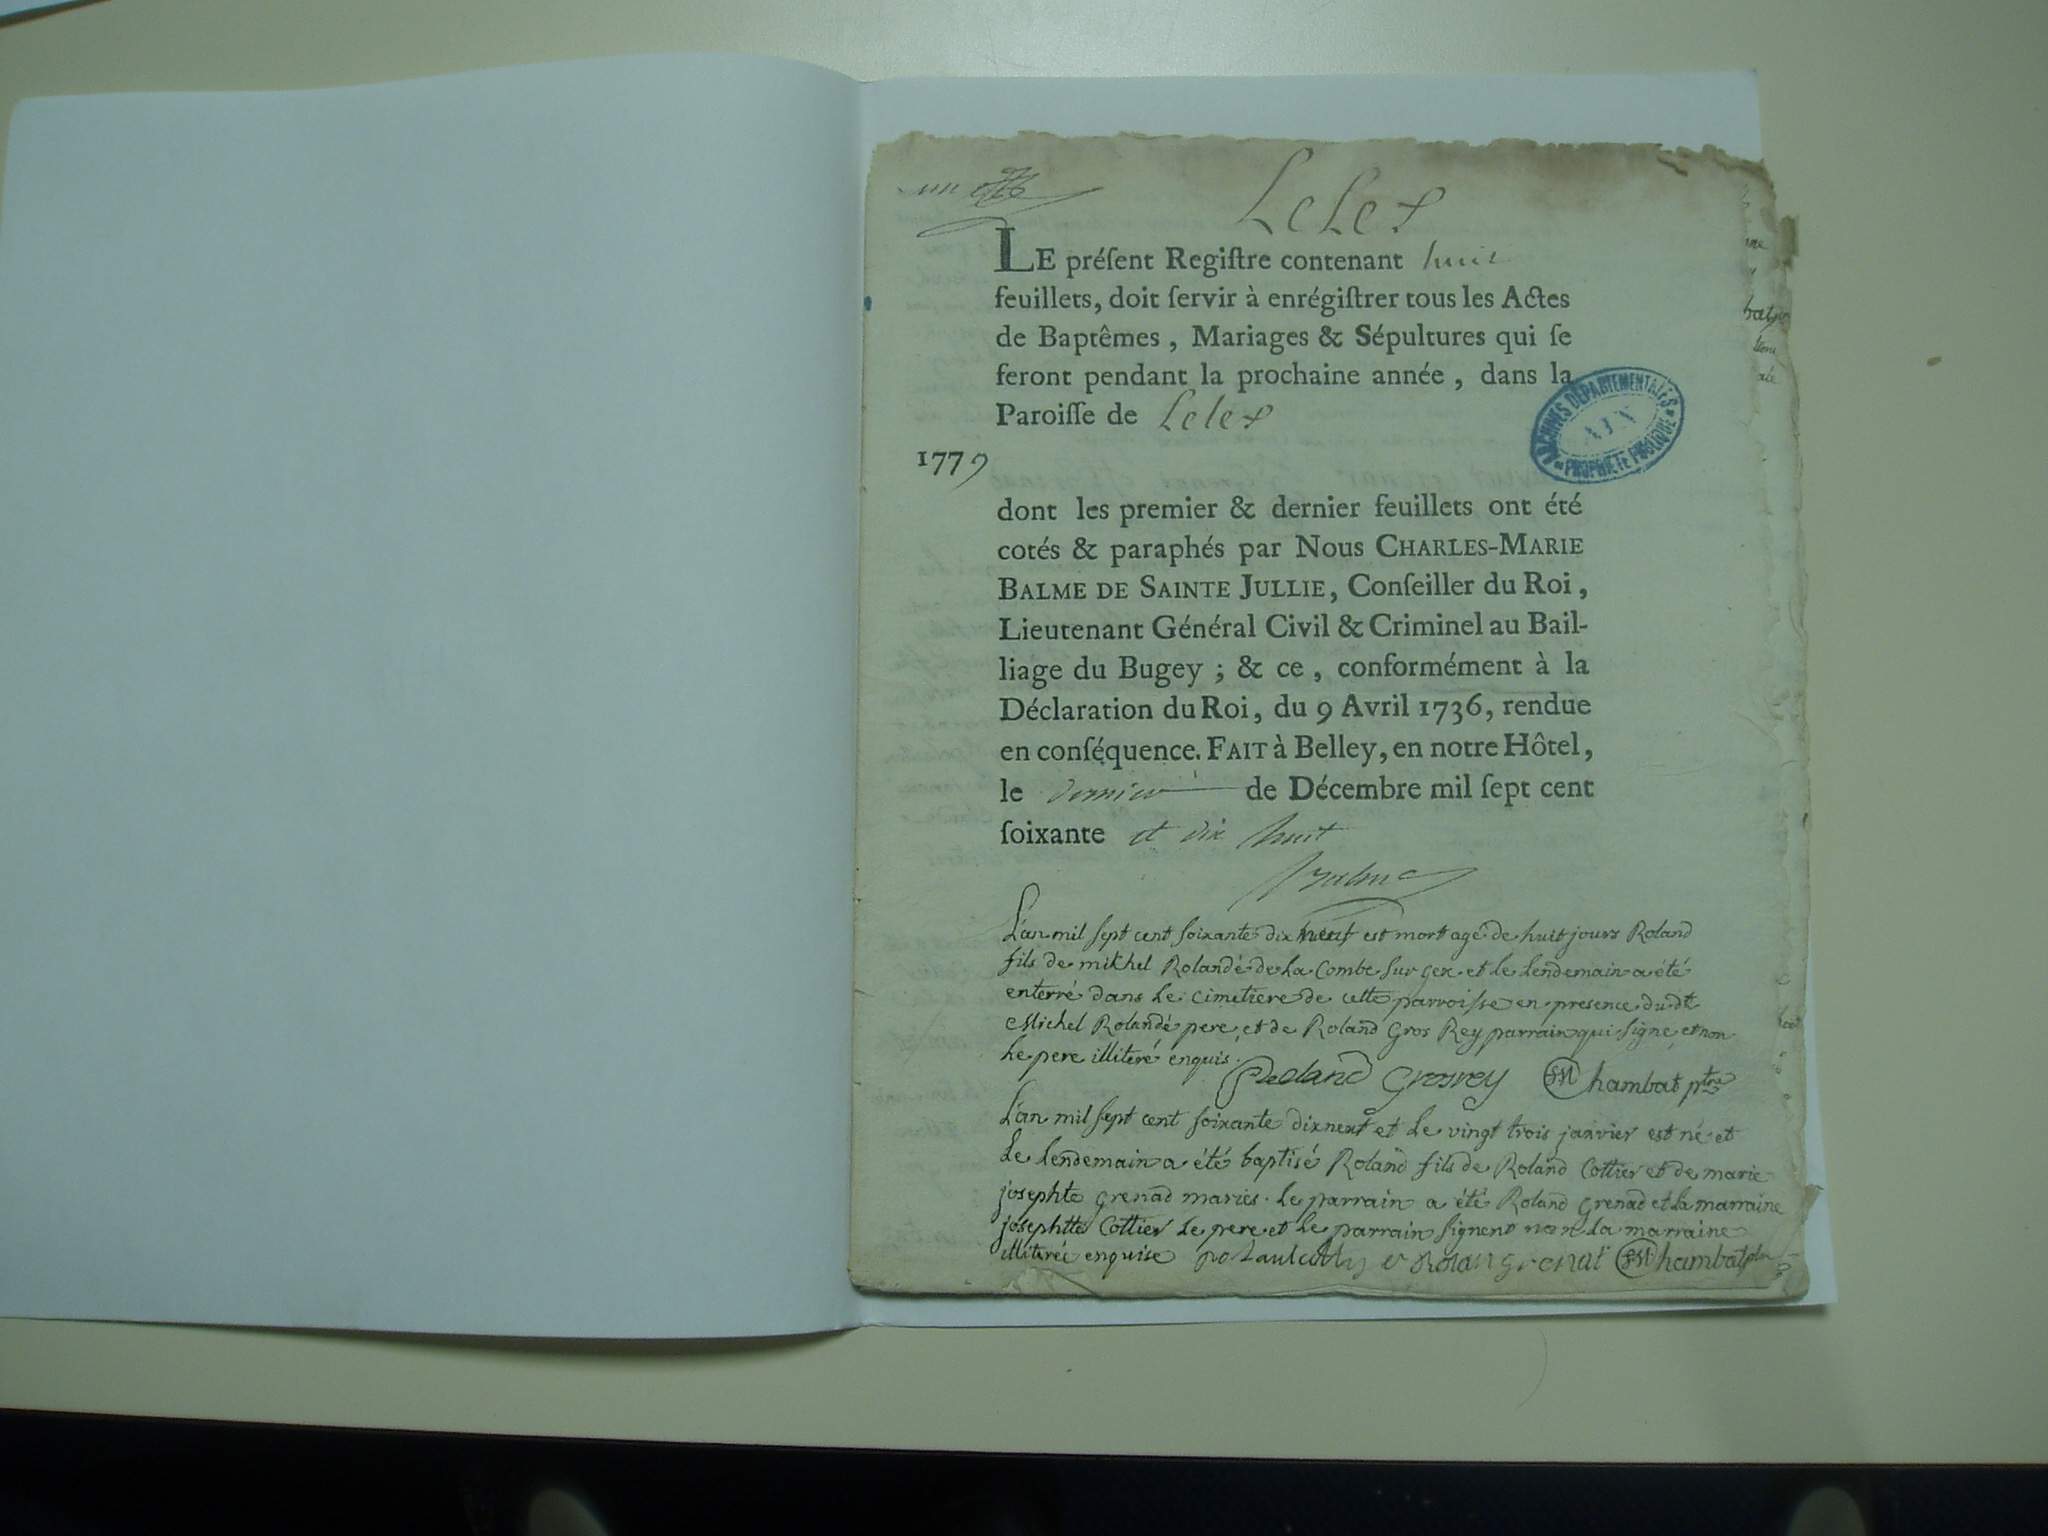 un
Lelex
LE préſent Regiſtre contenant huit
feuillets, doit ſervir à enrégiſtrer tous les Actes
de Baptêmes, Mariages & Sépultures qui ſe
feront pendant la prochaine année, dans la
Paroiſſe de Lelex
1779
ARCHIVES DÉPARTEMENTALES
AIN
PROPRIÉTÉ PUBLIQUE
dont les premier & dernier feuillets ont été
cotés & paraphés par Nous CHARLES-MARIE
BALME DE SAINTE JULLIE, Conſeiller du Roi,
Lieutenant Général Civil & Criminel au Bail-
liage du Bugey; & ce, conformément à la
Déclaration du Roi, du 9 Avril 1736, rendue
en conſéquence. FAIT à Belley, en notre Hôtel,
le dernier de Décembre mil ſept cent
ſoixante et dix huit
Balme
L'an mil sept cent soixante dix neuf est mort agé de huit jours Roland
fils de mikhel Rolandé de la Combe sur gex et le lendemain a été
enterré dans le cimetiere de cette parroisse en presence du dt
Michel Rolandé pere et de Roland Gros Rey parrain qui signe et non
le pere illiteré enquis.
Roland Grosrey Chambat ptre
L'an mil sept cent soixante dix neuf et le vingt trois janvier est né et
le lendemain a été baptisé Roland fils de Roland Cottier et de marie
josephte grenad mariés. le parrain a été Roland grenad et la marraine
josephtte Cottier le pere et le parrain signent non la marraine
illiterée enquise Rolan grenat Chambat ptre